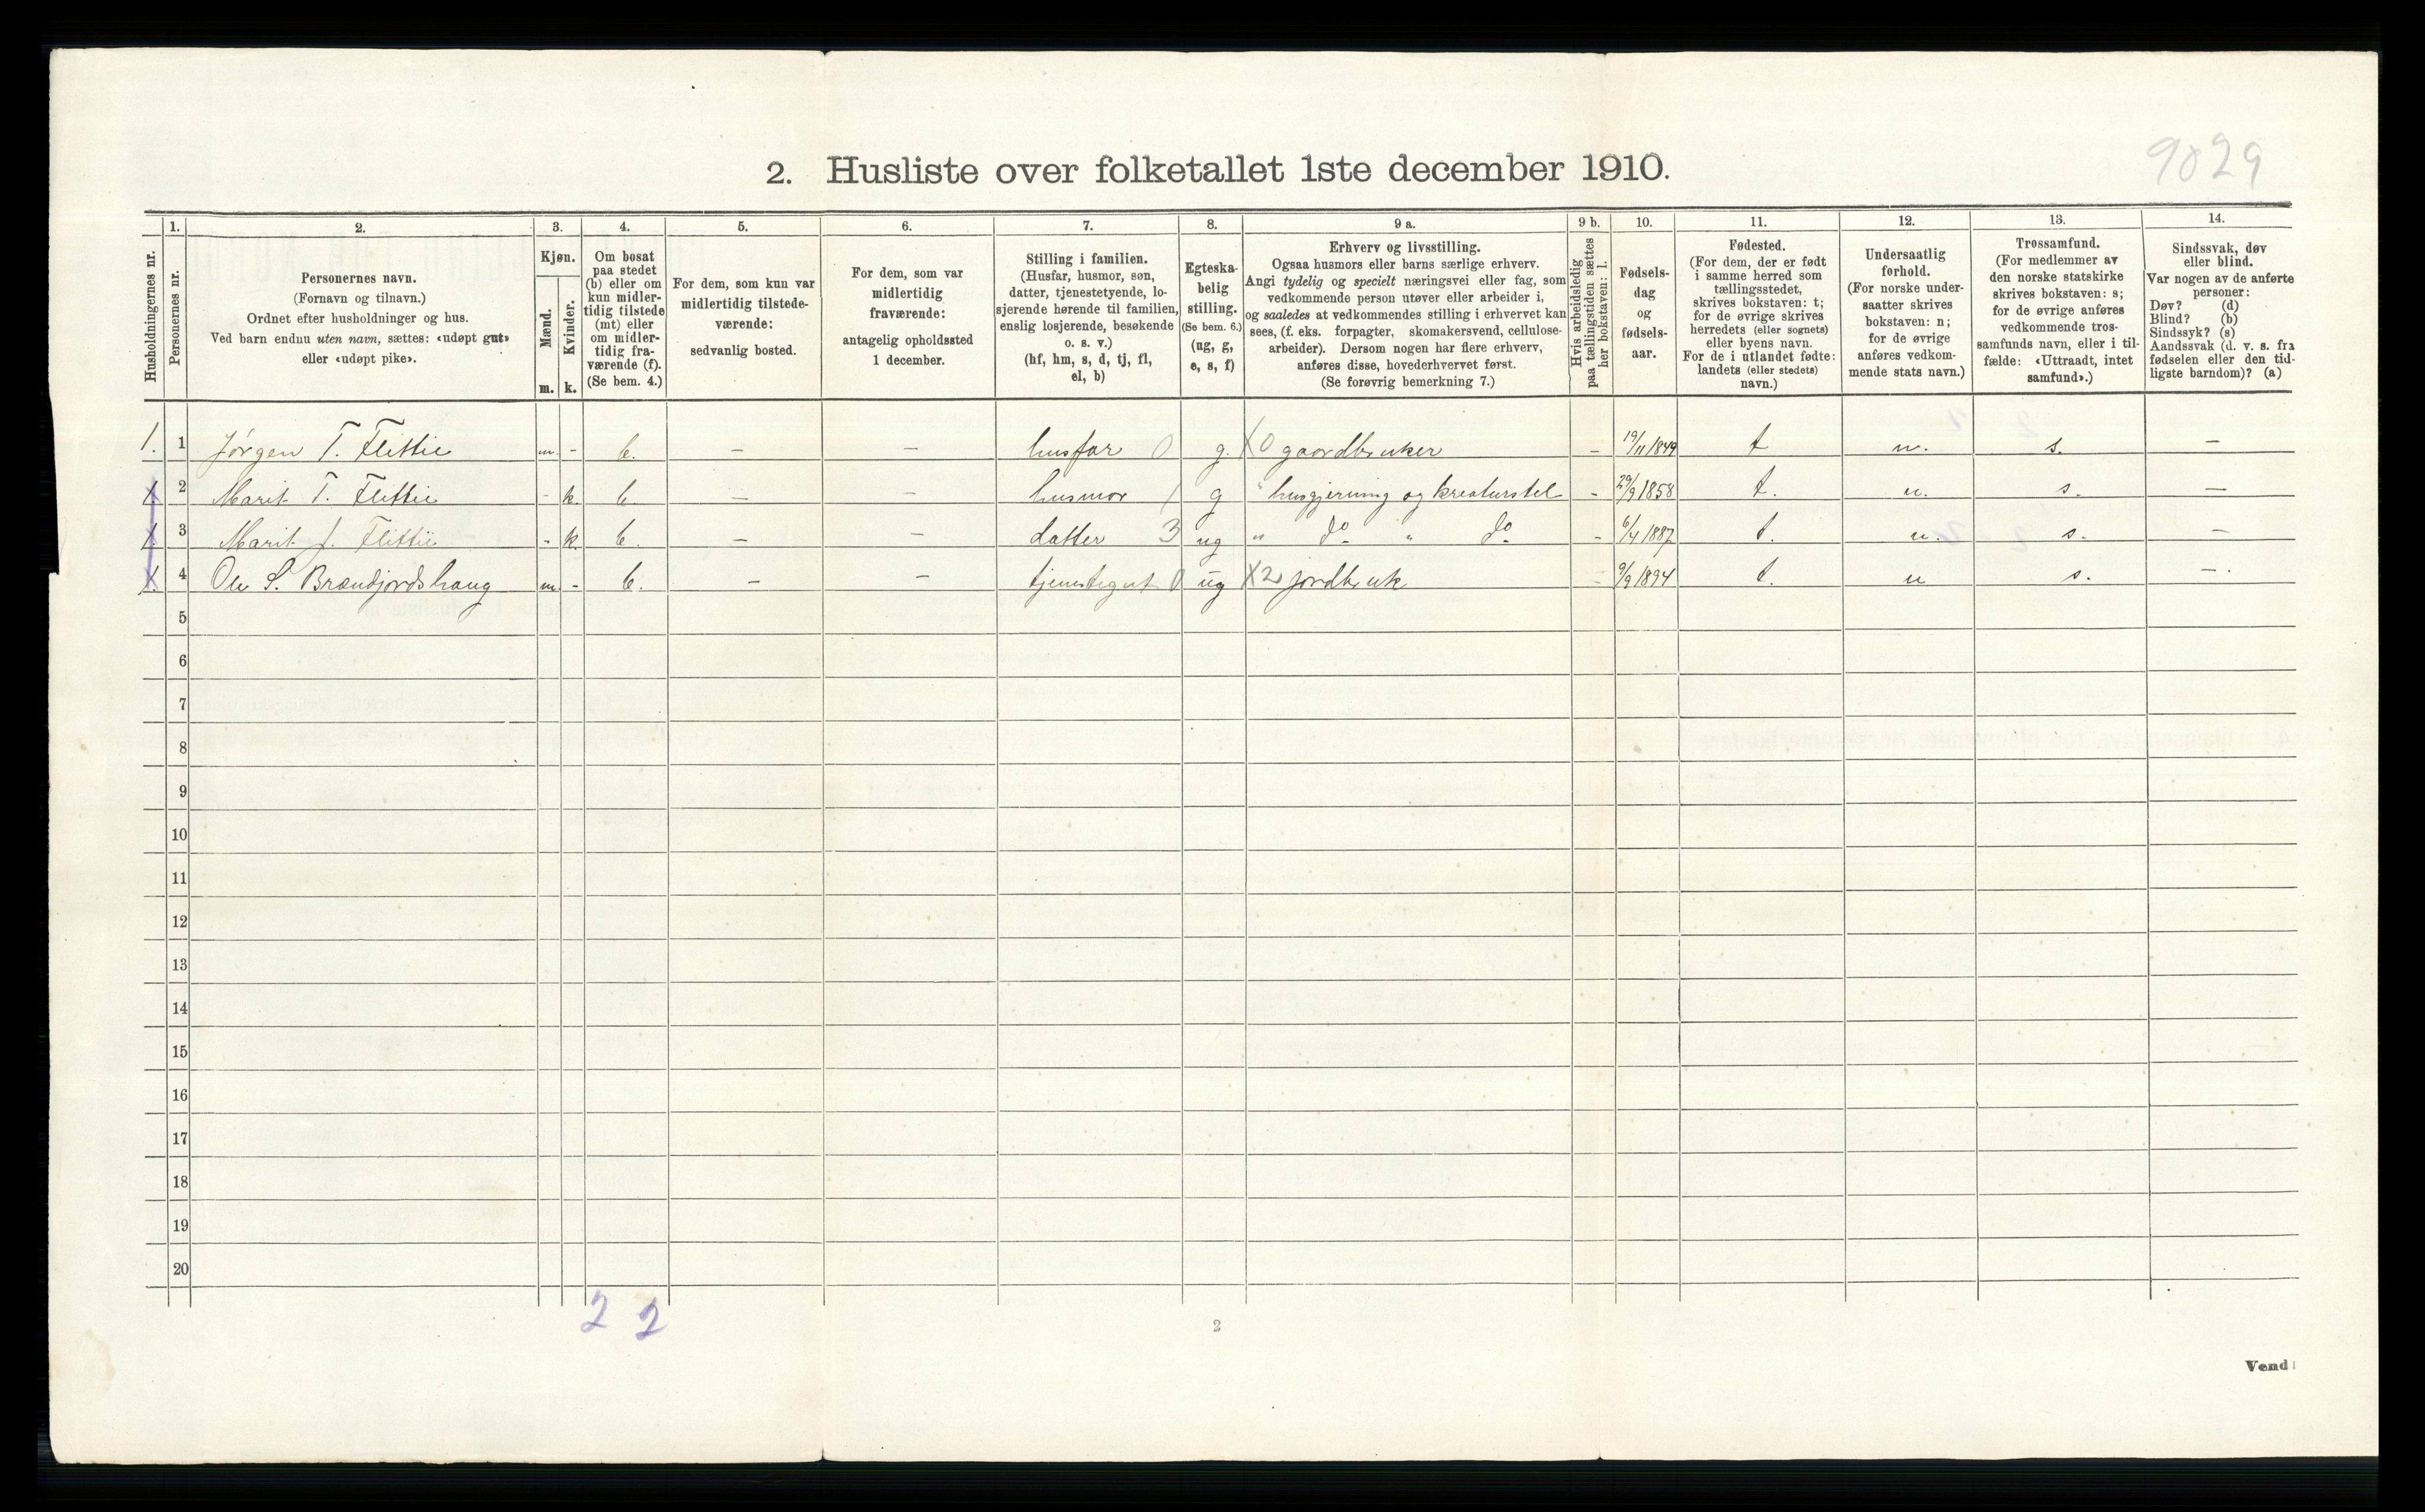 9029
2. Husliste over folketallet 1ste december 1910.
Husholdningernes nr.
1.
Personernes nr.
2.
Personernes navn.
(Fornavn og tilnavn.)
Ordnet efter husholdninger og hus.
Ved barn endnu uten navn, sættes: «udøpt gut»
eller «udøpt pike».
3.
Kjøn.
Mænd.
Kvinder.
m. k.
4.
Om bosat
paa stedet
(b) eller om
kun midler-
tidig tilstede
(mt) eller
om midler-
tidig fra-
værende (f).
(Se bem. 4.)
5.
For dem, som kun var
midlertidig tilstede-
værende:
sedvanlig bosted.
6.
For dem, som var
midlertidig
fraværende:
antagelig opholdssted
1 december.
7.
Stilling i familien.
(Husfar, husmor, søn,
datter, tjenestetyende, lo-
sjerende hørende til familien,
enslig losjerende, besøkende
o. s. v.)
(hf, hm, s, d, tj, fl,
el, b)
8.
Egteska-
belig
stilling.
(Se bem. 6.)
(ug, g,
e, s, f)
9 a.
Erhverv og livsstilling.
Ogsaa husmors eller barns særlige erhverv.
Angi tydelig og specielt næringsvei eller fag, som
vedkommende person utøver eller arbeider i,
og saaledes at vedkommendes stilling i erhvervet kan
sees, (f. eks. forpagter, skomakersvend, cellulose-
arbeider). Dersom nogen har flere erhverv,
anføres disse, hovederhvervet først.
(Se forøvrig bemerkning 7.)
9 b.
Hvis arbeidsledig
paa tællingstiden sættes
her bokstaven: l.
10.
Fødsels-
dag
og
fødsels-
aar.
11.
Fødested.
(For dem, der er født
i samme herred som
tællingsstedet,
skrives bokstaven: t;
for de øvrige skrives
herredets (eller sognets)
eller byens navn.
For de i utlandet fødte:
landets (eller stedets)
navn.)
12.
Undersaatlig
forhold.
(For norske under-
saatter skrives
bokstaven: n;
for de øvrige
anføres vedkom-
mende stats navn.)
13.
Trossamfund.
(For medlemmer av
den norske statskirke
skrives bokstaven: s;
for de øvrige anføres
vedkommende tros-
samfunds navn, eller i til-
fælde: «Uttraadt, intet
samfund».)
14.
Sindssvak, døv
eller blind.
Var nogen av de anførte
personer:
Døv? (d)
Blind? (b)
Sindssyk? (s)
Aandssvak (d. v. s. fra
fødselen eller den tid-
ligste barndom)? (a)
1. 1 Jørgen T. Flittie m. - b. - - husfar 0 g. X0 gaardbruker - 19/11 1849 t n. s. -
1. 2 Marit T. Flittie - k. b. - - husmor 1 g " husgjerning og kreaturstel - 29/9 1858 t. n. s. -
1. 3 Marit J. Flittie - k. b. - - datter 3 ug " do " do - 6/4 1887 t. n. s. -
1. 4 Ole S. Brændjordshaug m. - b. - - tjenestegut 0 ug X2 jordbruk - 9/9 1894 t. n s. -.
5
6
7
8
9
10
11
12
13
14
15
16
17
18
19
20
2 2
2
Vend